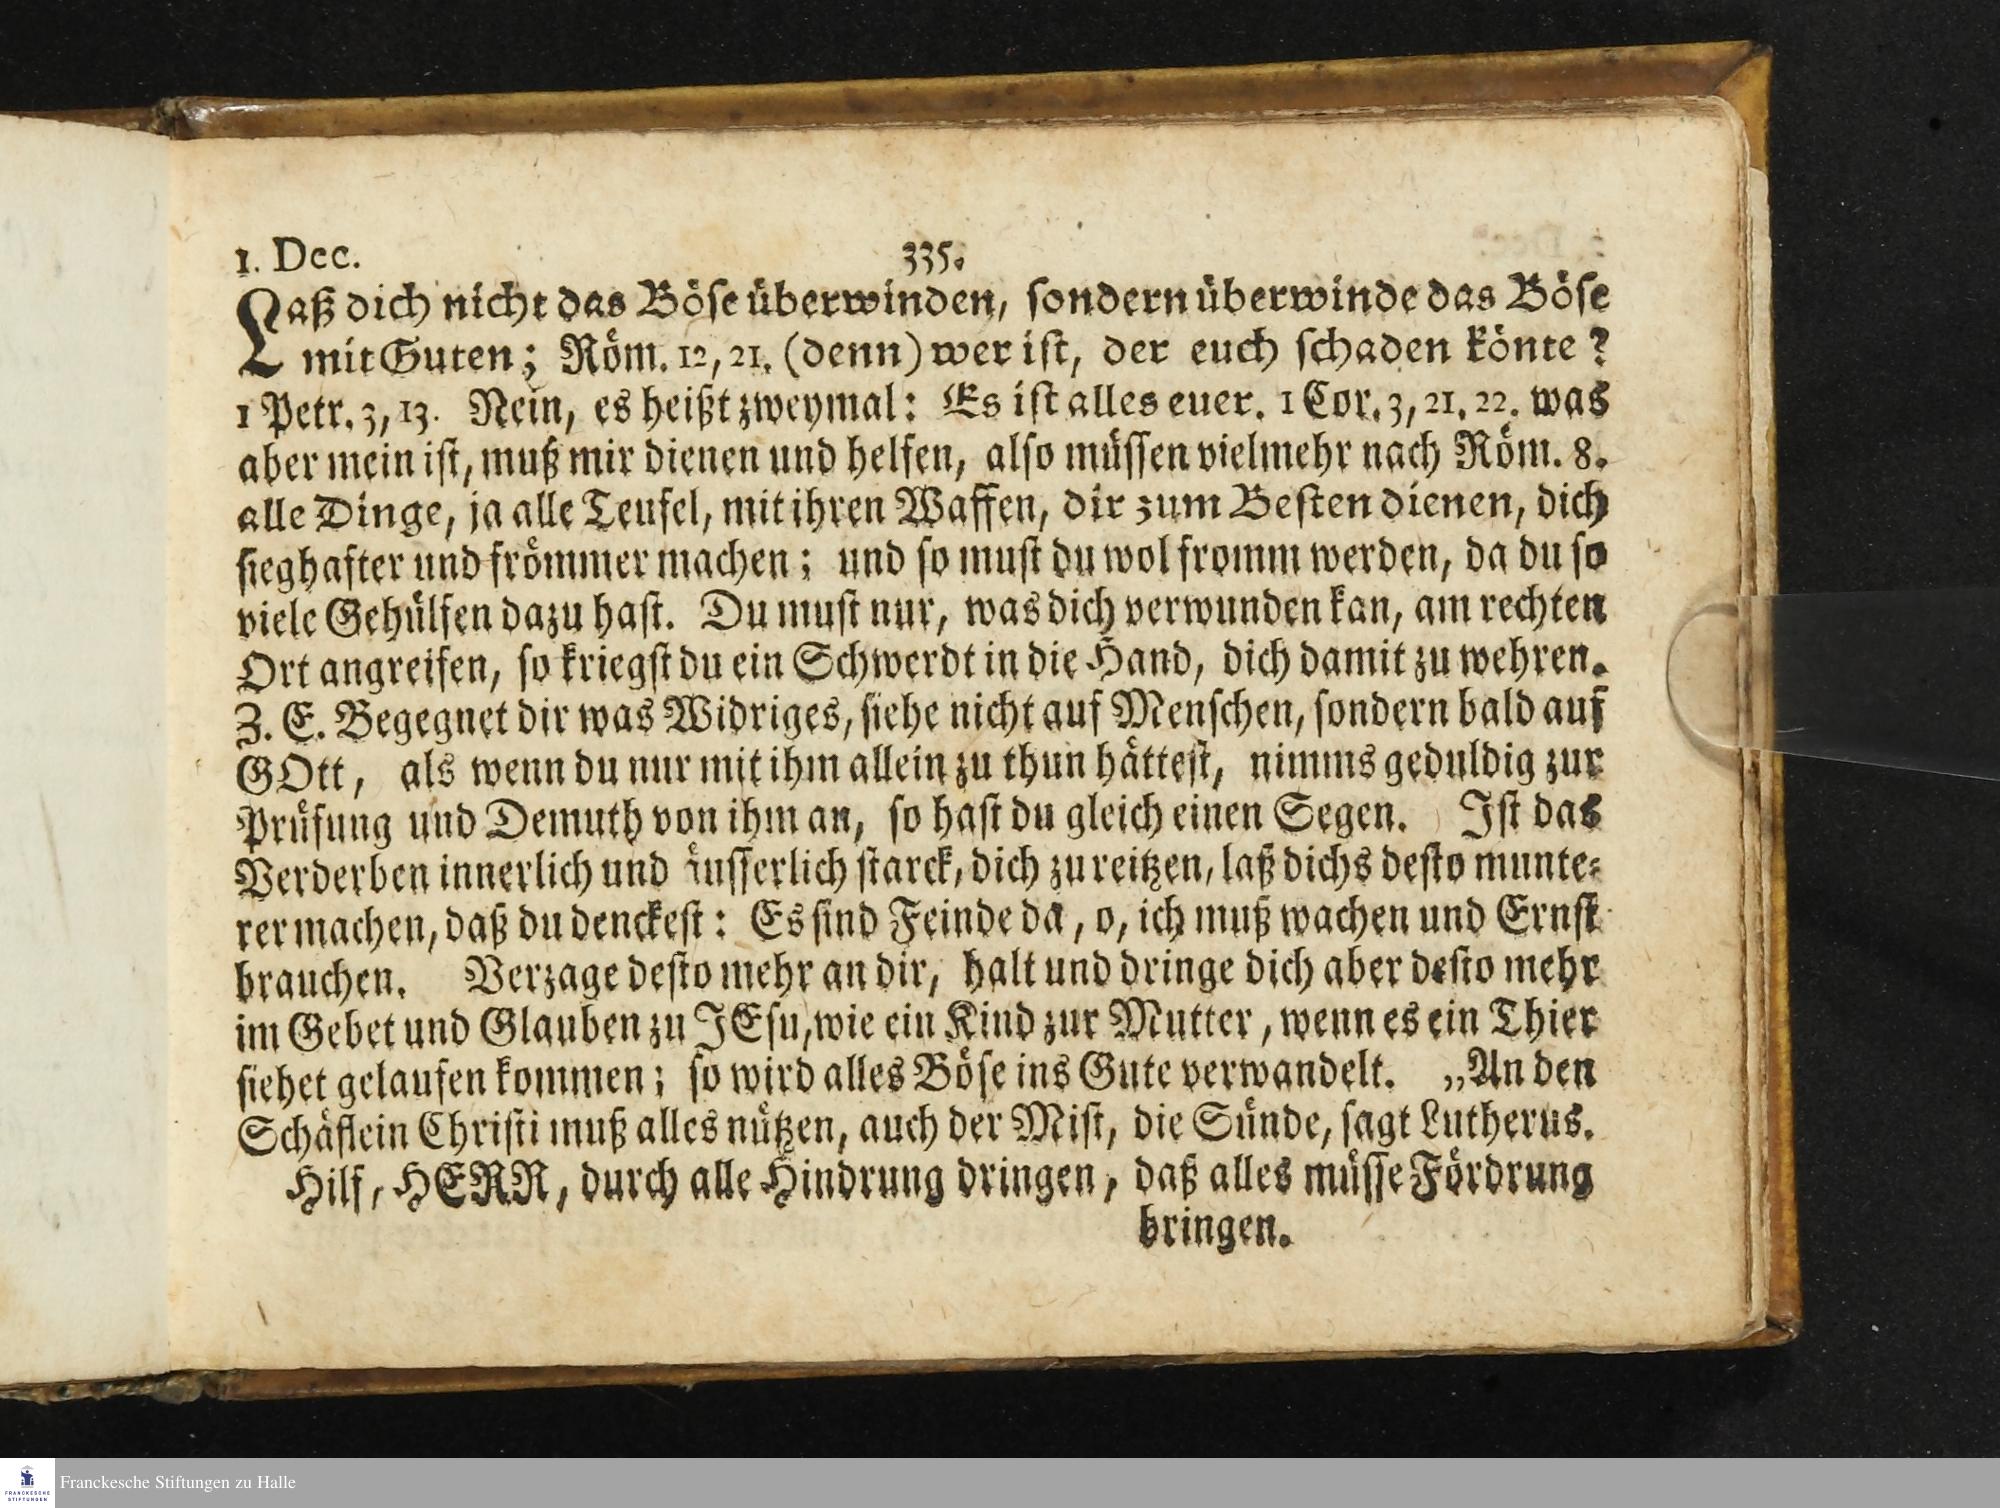 1. Dec. 335.
Laß dich nicht das Böse überwinden, sondern überwinde das Böse
mit Guten; Röm. 12, 21. (denn) wer ist, der euch schaden könte?
1 Petr. 3, 13. Nein, es heißt zweymal: Es ist alles euer. 1 Cor. 3, 21. 22. was
aber mein ist, muß mir dienen und helfen, also müssen vielmehr nach Röm. 8.
alle Dinge, ja alle Teufel, mit ihren Waffen, dir zum Besten dienen, dich
sieghafter und frömmer machen; und so must du wol fromm werden, da du so
viele Gehülfen dazu hast. Du must nur, was dich verwunden kan, am rechten
Ort angreifen, so kriegst du ein Schwerdt in die Hand, dich damit zu wehren.
Z. E. Begegnet dir was Widriges, siehe nicht auf Menschen, sondern bald auf
GOtt, als wenn du nur mit ihm allein zu thun hättest, nimms geduldig zur
Prüfung und Demuth von ihm an, so hast du gleich einen Segen. Ist das
Verderben innerlich und äusserlich starck, dich zu reitzen, laß dichs desto munte-
rer machen, daß du denckest: Es sind Feinde da, o, ich muß wachen und Ernst
brauchen. Verzage desto mehr an dir, halt und dringe dich aber desto mehr
im Gebet und Glauben zu JEsu, wie ein Kind zur Mutter, wenn es ein Thier
siehet gelaufen kommen; so wird alles Böse ins Gute verwandelt. „An den
Schäflein Christi muß alles nützen, auch der Mist, die Sünde, sagt Lutherus.
Hilf, HERR, durch alle Hindrung dringen, daß alles müsse Fördrung
bringen.
FRANCKESCHE
STIFTUNGEN
Franckesche Stiftungen zu Halle